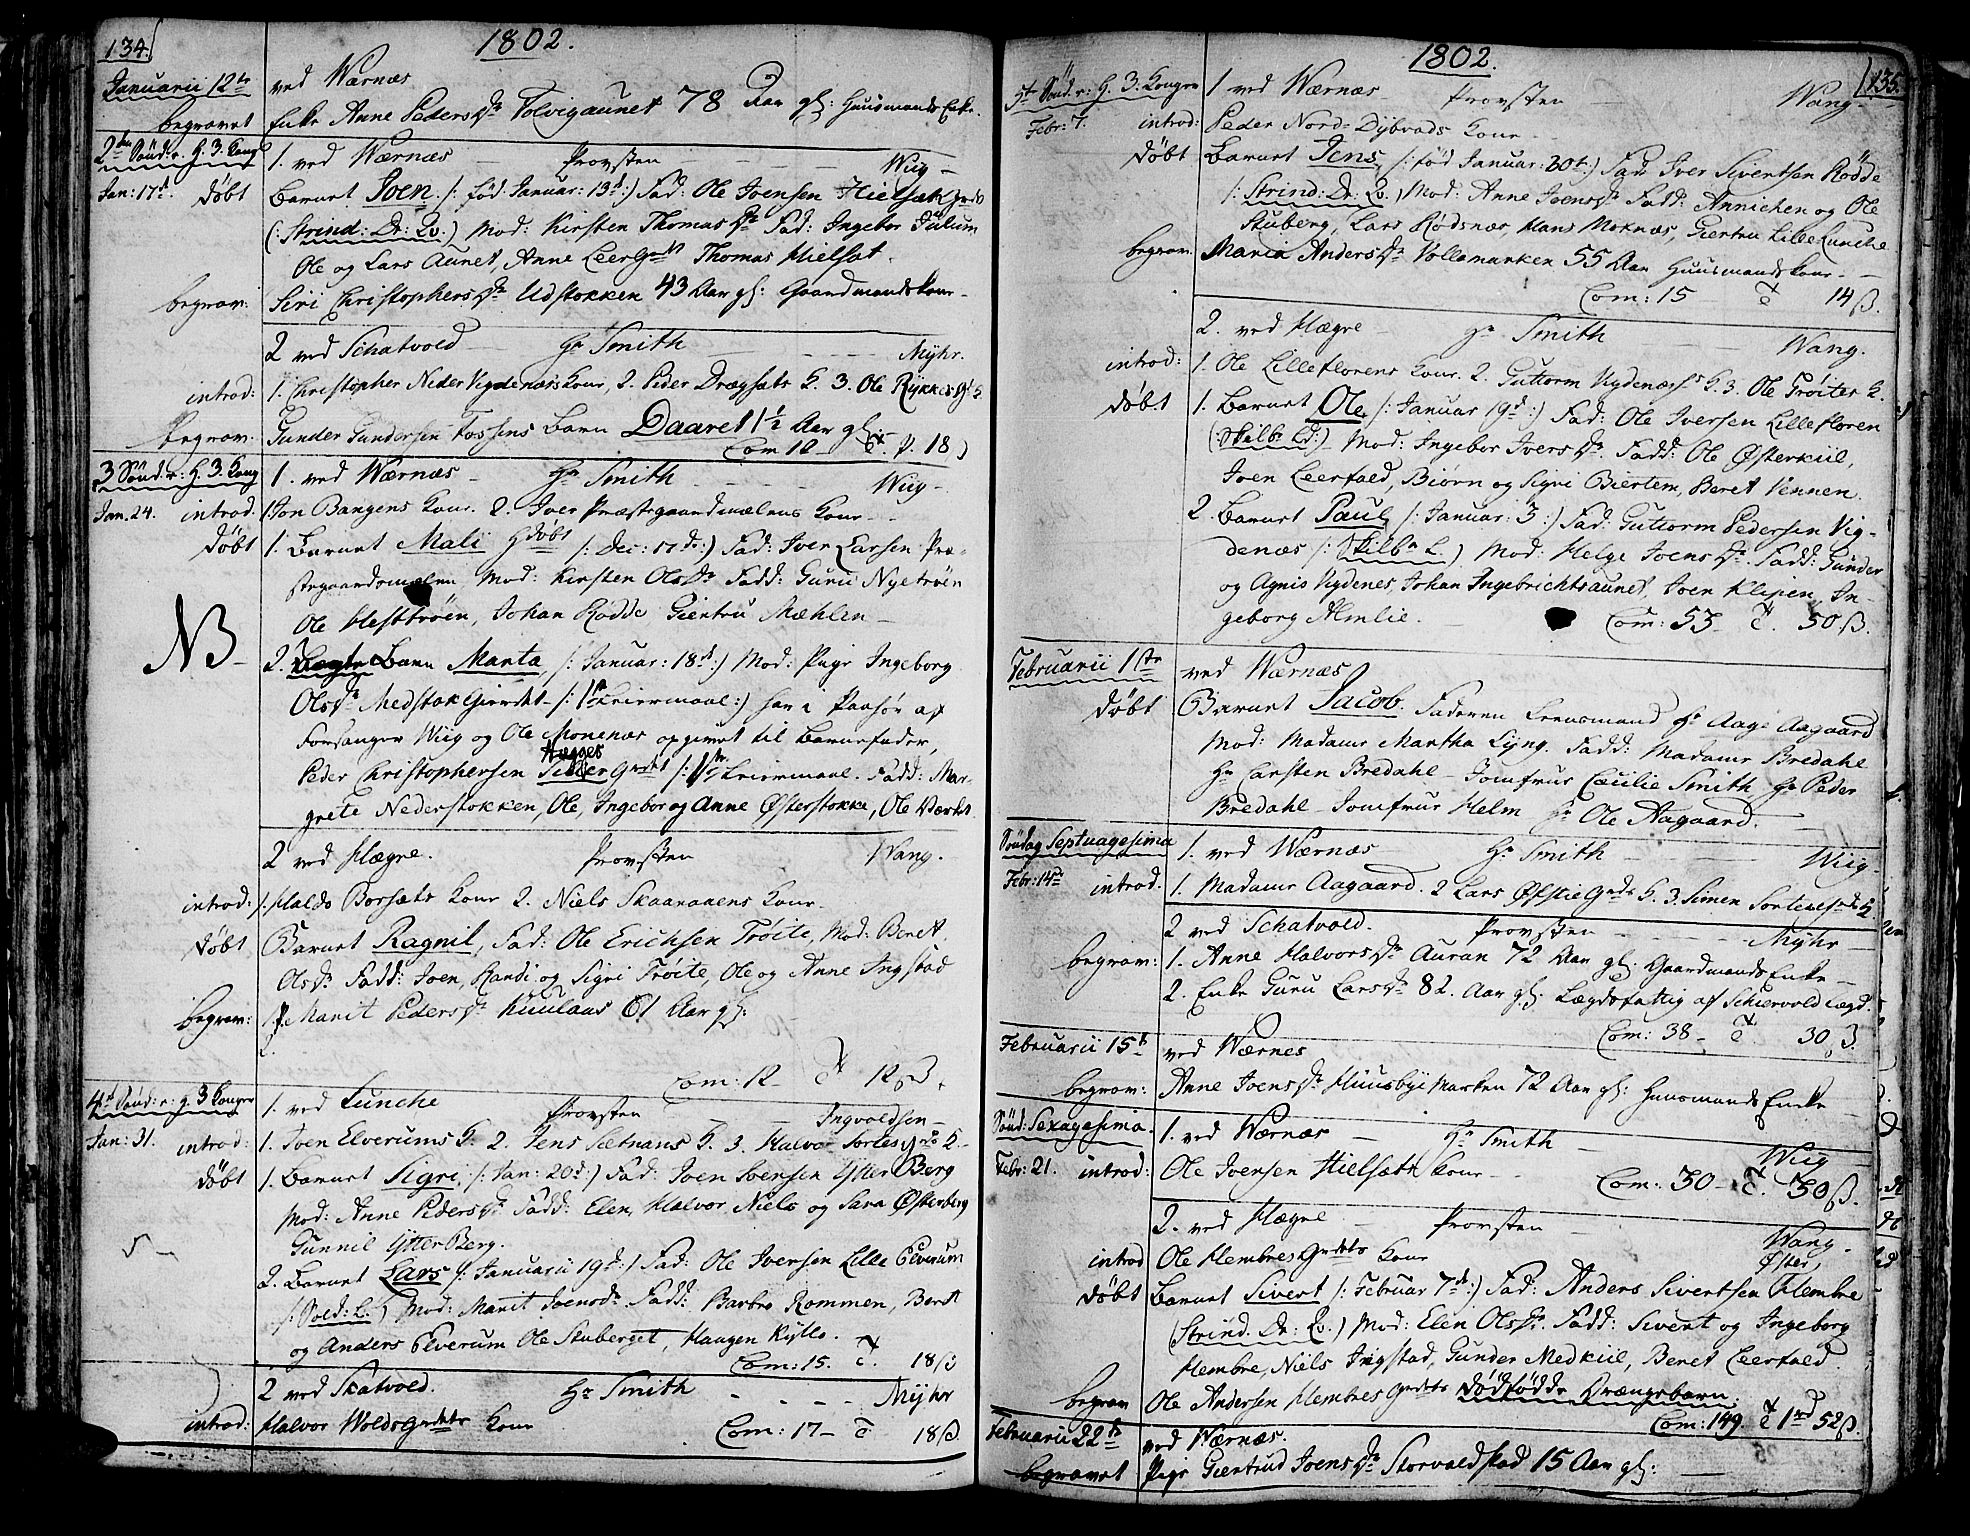 134.
1802.
Januarii 12te ved Wærnæs
begravet Enke Anne Pedersdr Tolvigaunet 78 Aar gl: Huusmands Enke.
2den Sönd: e: H. 3 Kong 1. ved Wærnæs — Provsten — Wiig —
Jan: 17d döbt Barnet Joen /: föd Januar: 13d :/ Fad: Ole Joensen Hielsæt
(: Strind: Dr: Qv.) Mod: Kirsten Thomasdr Fad: Ingebor Julum
Ole og Lars Aunet, Anne Leer Thomas Hielsæt.
begrav: Siri Christophersdr Udstokken 43 Aar gl: Gaardmandskone —
2 ved Schatvold — Hr Smith — Mÿhr.
introd: 1. Christopher Neder Vigdenæs Kone, 2. Peder Drægsæts K. 3. Ole Rÿkkes K.
begrav: Gunder Gundersen Fossens Barn Daaret 1½ Aar gl:
Com 12
3 Sönd: e: H. 3. Kong 1. ved Wærnæs — Hr Smith — Wiig —
Jan. 24. introd. 1. Jon Bangens Kone. 2. Iver Præstegaardmælens Kone
döbt 1. Barnet Mali Hdöbt /: Dec: 17de :/ Fad: Iver Larsen Præ-
stegaardsmælen Mod: Kirsten Olsdr Fadd: Guru Nyetröen
Ole Hesttröen, Johan Rödde, Giertru Mæhlen —
NB — 2. Uægte Barn Marta, /: Januar: 18d :/ Mod: Pige Ingeborg
Olsdr Medstokgierdet /: 1te Leiermaal :/ har i Paahör af
Forsanger Wiig og Ole Monenæs opgivet til Barnefader,
Peder Christophersen Hægges /: 1te Leiermaal. Fadd: Mar-
grete Nederstokken, Ole, Ingebor og Anne Österstokke, Ole Værket
2 ved Hægre. Provsten — Wang.
introd: 1. Haldo Borsæts Kone 2. Niels Skaaraaens Kone.
döbt Barnet Ragnil, Fad: Ole Erichsen Tröite, Mod: Beret
Olsdr Fadd: Joen, Randi og Sigri Tröite, Ole og Anne Ingstad
begrav: 1. Marit Pedersdr Kuulaas 61 Aar gl:
2.
Com: 12 — 12 ß.
4d Sönd: e: H. 3 Konger 1. ved Lunche Provsten — Ingvoldsen —
Jan: 31. introd: 1. Joen Elverums K. 2. Jens Sætnans K. 3. Halvor Sortes K.
döbt 1. Barnet Sigri, /: Jan: 20d :/ Fad: Joen Joensen Ytter Berg
Mod: Anne Pedersdr Fadd: Elen, Halvor Niels og Sara Österberg
Gunnil Ytter Berg.
2. Barnet Lars /: Januarii 19d :/ Fad: Ole Iversen Lille Elverum
/: Sold: L.) Mod: Marit Joensdr Fadd: Barbro Rommen, Beret
og Anders Elverum Ole Skuberget, Haagen Kÿllo.
Com: 15. 18 ß
2 ved Skatvold. Hr Smith — Mÿhr
introd: Halvor Wolds Kone Com: 17 — 18 ß
1802.
135.
5te Sönd: e: H. 3 Konger 1 ved Wærnæs — Provsten — Wang —
Febr: 7. introd: Peder Nord-Dÿbvads Kone —
döbt Barnet Jens, /: föd Januar: 30t :/ Fad: Iver Sivertsen Rödde
/: Strind: Dr: Qv.) Mod: Anne Joensdr Fadd: Annichen og Ole
Skuberg, Lars Rödsnæs, Hans Moknæs, Giertru Lille Lunche
begrav: Maria Andersdr Vollamarken 55 Aar Huusmandskone —
Com: 15 14 ß.
2. ved Hægre — Hr Smith — Wang.
introd: 1. Ole Lilleflorens Kone 2. Guttorm Vigdenæs K. 3. Ole Tröites K.
döbt 1. Barnet Ole /: Januar 19d :/ Fad: Ole Iversen Lilleflören
(: Skilb: Ld:) Mod: Ingebor Iversdr Fadd: Ole Österkiil,
Joen Leerfald, Biörn og Sigri Biertem, Beret Vennen.
2. Barnet Paul /: Januar: 3 :/ Fad: Guttorm Pedersen Vig-
denæs /: Skilbn L.) Mod: Helge Joensdr Fadd: Gunder
og Agnis Vigdenes, Johan Ingebrichtsaunet, Joen Klepen, In-
geborg Almlie. Com: 55 — 50 ß.
Februarii 1ste ved Wærnæs
döbt Barnet Jacob. Faderen Leensmand Hr Aage Aagaard
Mod: Madame Martha Lÿng. Fadd: Madame Bredahl
Hr Carsten Bredahl — Jomfrue Cæcilie Smith Hr Peder
Bredahl — Jomfrue Helm Hr Ole Aagaard.
Söndag Septuagesima 1. ved Wærnæs Hr Smith — Wiig —
Febr: 14d introd. 1. Madame Aagaard. 2 Lars Öfstie K. 3. Simen K
2 ved Schatvold. Provsten — Mÿhr —
begrav: 1. Anne Halvorsdr Auran 72 Aar gl: Gaardmands Enke —
2. Enke Guru Larsdr 82. Aar gl: Lægdsfattig af Schiervold Lægd.
Com: 38 — 30 ß.
Februarii 15d ved Wærnes
begrav: Anne Joensdr Huusbÿe Marken 72 Aar gl: Huusmands Encke
Sönd: Sexagesima. 1. ved Wærnæs — Hr Smith — Wiig
Febr: 21. introd: Ole Joensen Hielsæts Kone — Com: 30 — 30 ß.
2. ved Hægre Provsten — Wang —
introd Ole Hembres Kone
döbt Barnet Sivert /: Februar 7d :/ Fad: Anders Sivertsen Öster Hembre
(Strind. Dr: Qv.) Mod: Elen Olsdr. Fadd: Sivert og Ingeborg
Hembre, Niels Ingstad, Gunder Medkiil, Beret Leerfald.
begrav Ole Andersen Hembres dödfödde Drængebarn.
Com: 149. 1 52 ß.
Februarii 22de ved Wærnæs.
begravet Pige Giertrud Joensdr Storvoldstad 15 Aar gl: —